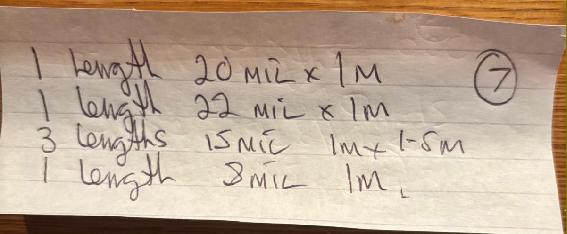 1 Length 20 MIL x 1M
7
1 Length 22 MIL x 1M
3 Lengths 15 MIL 1M x 1-5M
1 Length 8 MIL 1M.